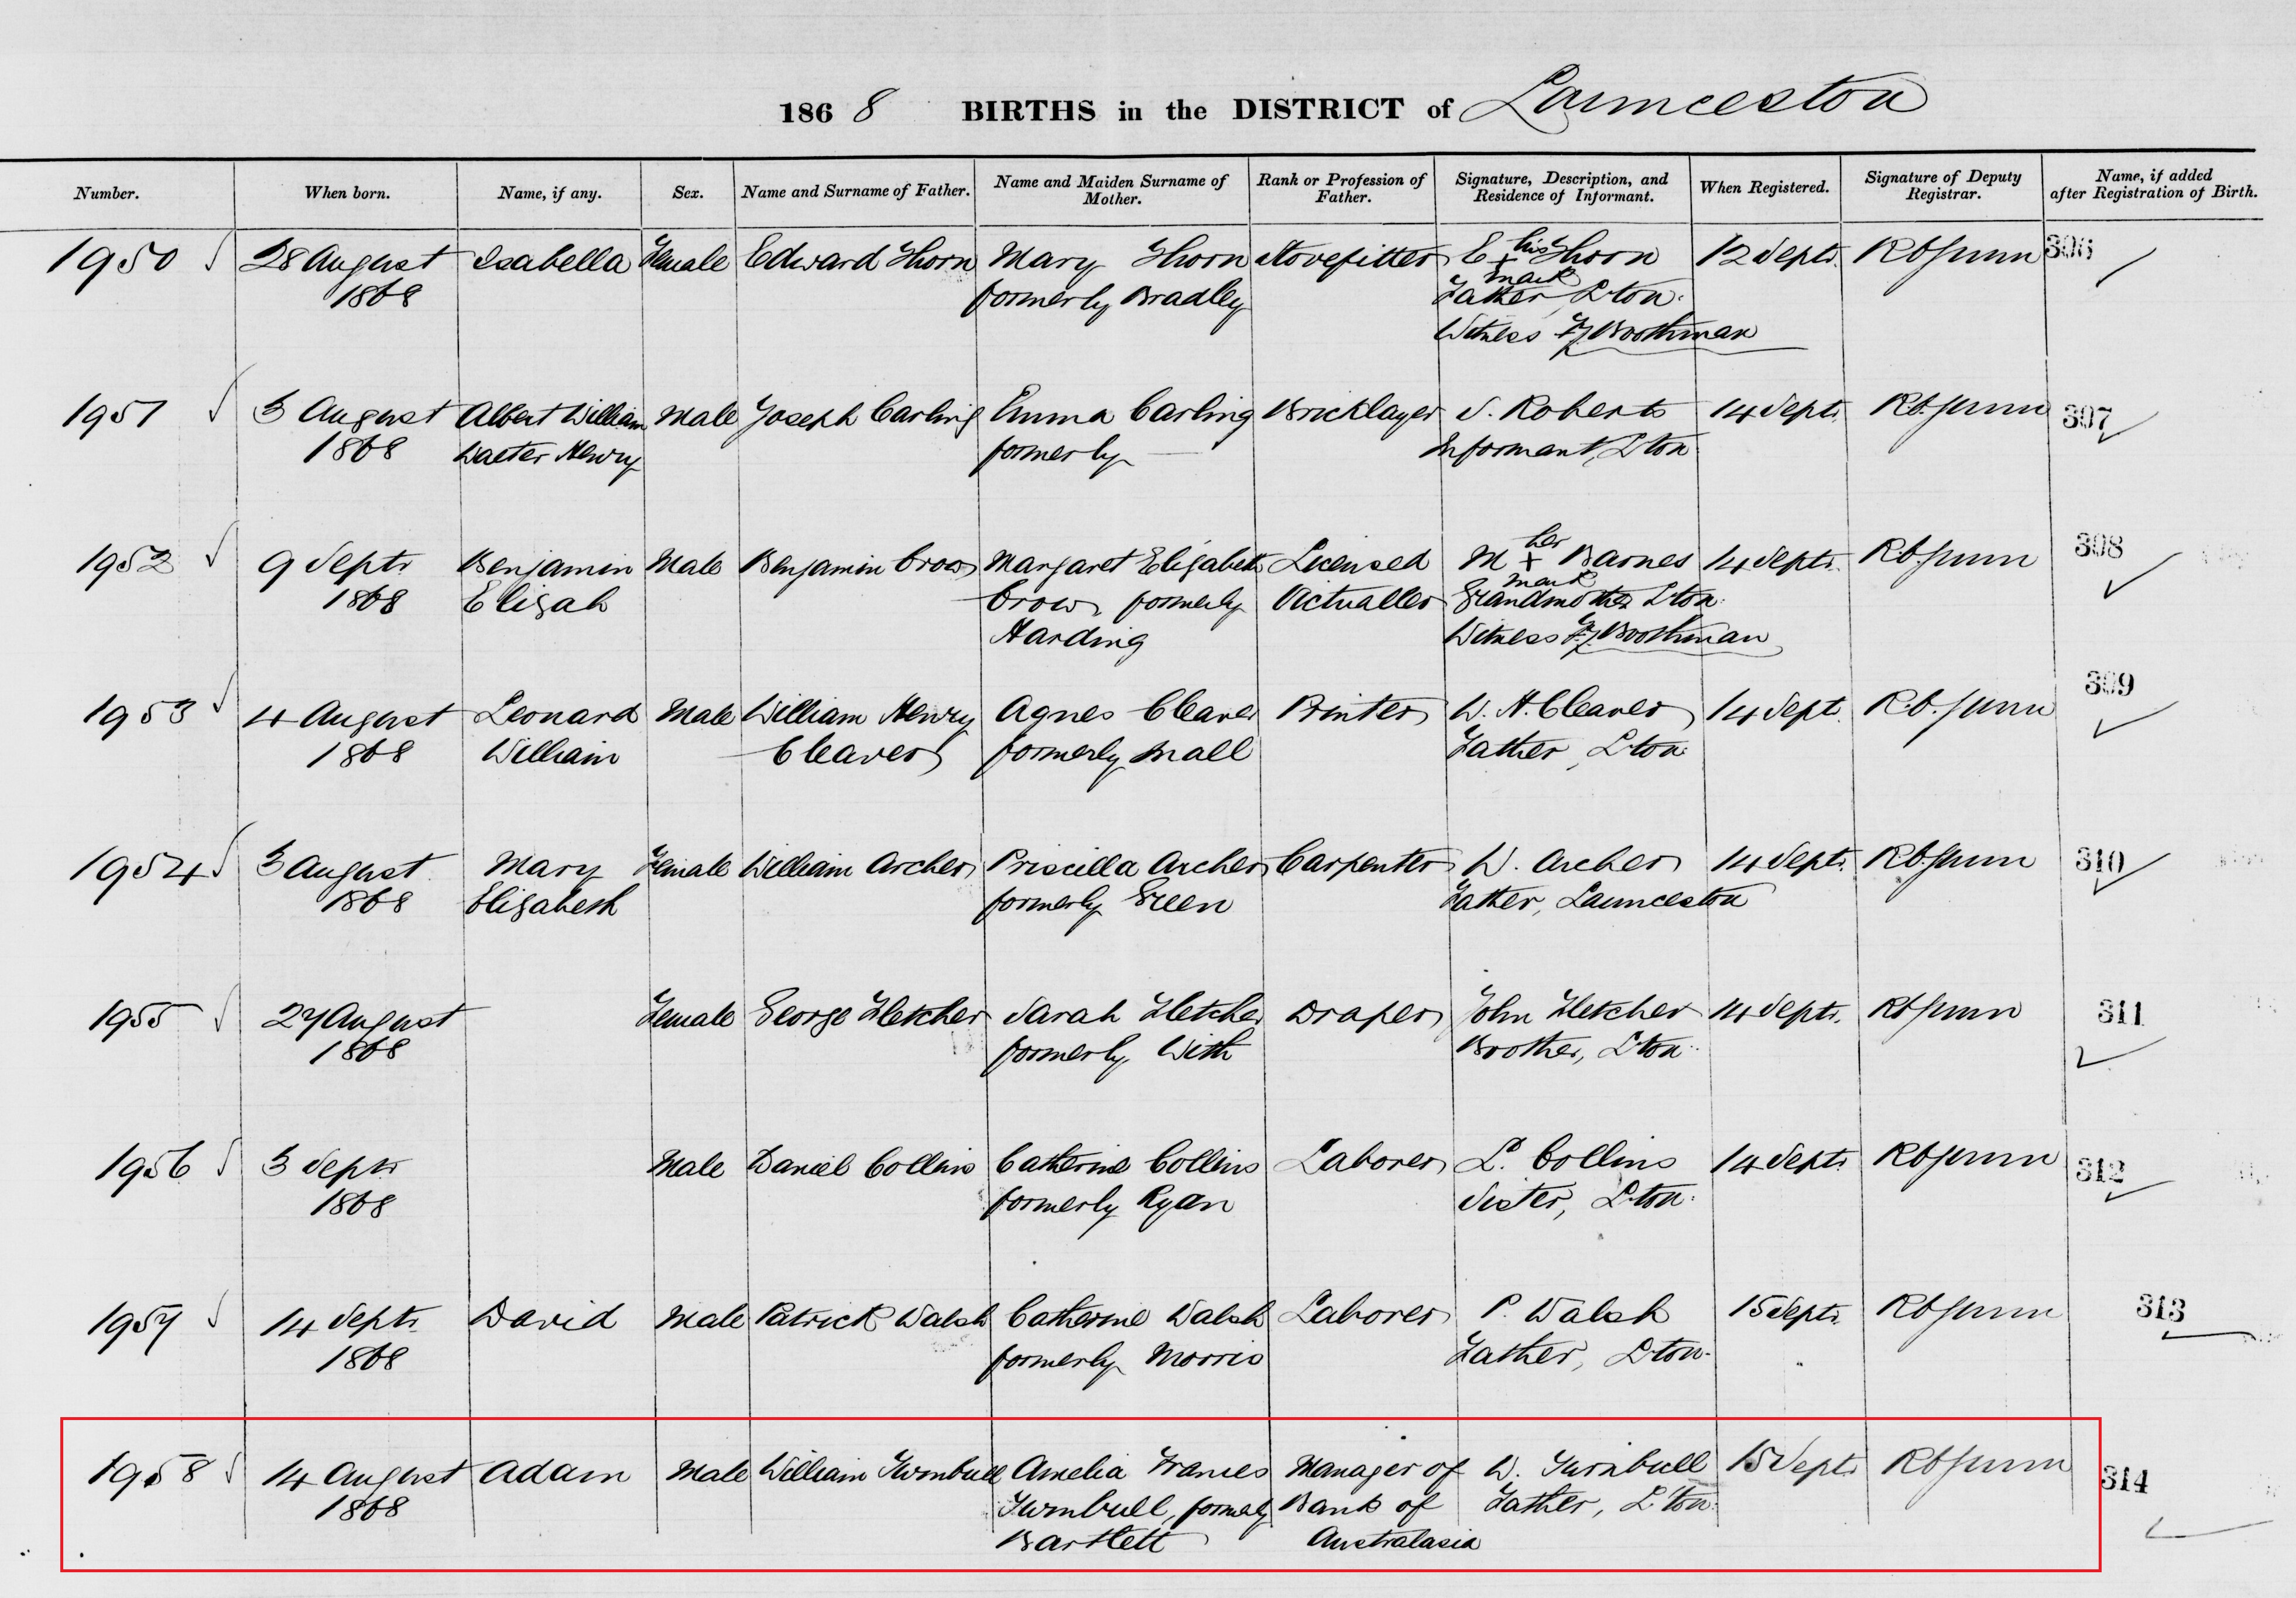 1868 BIRTHS in the DISTRICT of Launceston
Number. When born. Name, if any. Sex. Name and Surname of Father. Name and Maiden Surname of Mother. Rank or Profession of Father. Signature, Description, and Residence of Informant. When Registered. Signature of Deputy Registrar. Name, if added after Registration of Birth.
1950 28 August Isabella Female Edward Thorn Mary Thorn Stovefitter E his x mark Thorn 12 Septr. 306
1868 formerly Bradley Father, L'ton.
Witness Boothman
1951 3 August Albert William Male Joseph Carling Emma Carling Bricklayer S. Roberts 14 Septr. 307
1868 Walter Henry formerly — Informant, L'ton
1952 9 Septr Benjamin Male Benjamin Crow Margaret Elizabeth Licensed M her x mark Barnes 14 Septr. 308
1868 Elijah Crow, formerly Victualler Grandmother L'ton.
Harding Witness Boothman
1953 4 August Leonard Male William Henry Agnes Cleaver Printer W. H. Cleaver 14 Sept. 309
1868 William Cleaver formerly Mall Father, L'ton.
1954 3 August Mary Female William Archer Priscilla Archer Carpenter W. Archer 14 Septr. 310
1868 Elizabeth formerly Green Father, Launceston
1955 27 August Female George Fletcher Sarah Fletcher Draper John Fletcher 14 Septr. 311
1868 formerly With Brother, L'ton.
1956 3 Septr Male Daniel Collins Catherine Collins Laborer L. Collins 14 Septr 312
1868 formerly Ryan Sister, L'ton.
1957 14 Septr. David Male Patrick Walsh Catherine Walsh Laborer P. Walsh 15 Septr. 313
1868 formerly Morris Father, L'ton.
1958 14 August Adam Male William Turnbull Amelia Frances Manager of W. Turnbull 15 Septr 314
1868 Turnbull, formerly Bank of Father, L'ton.
Bartlett Australasia